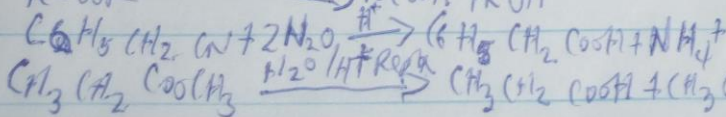 C6H5 CH2 CN + 2H2O H+ → C6H5 CH2 COOH + NH4+
CH3 CH2 COOCH3 H2O/H+ → CH3 CH2 COOH + CH3